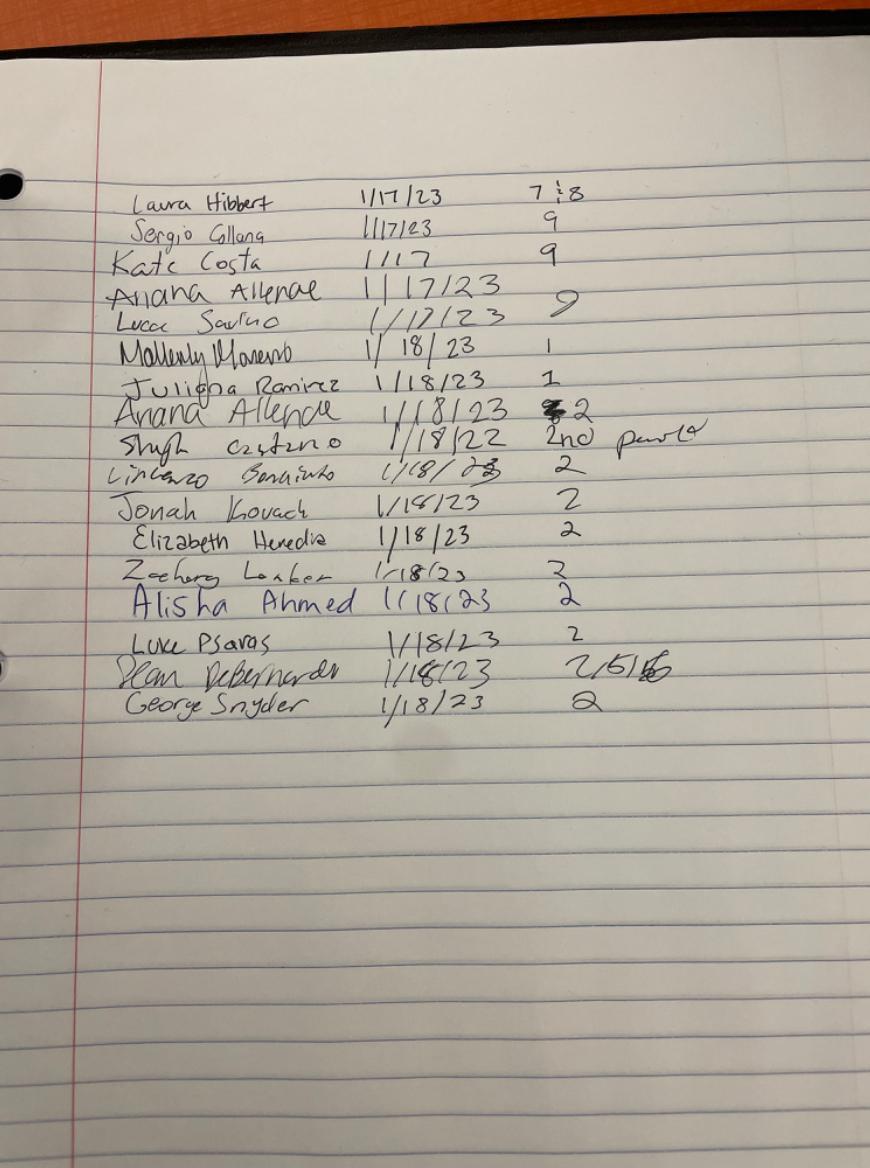 Laura Hibbert 1/17/23 7 & 8
Sergio Collana 1/17/23 9
Kate Costa 1/17 9
Ariana Allende 1/17/23
Luca Savino 1/17/23 9
Moreno 1/18/23 1
Juliana Ramirez 1/18/23 1
Ariana Allende 1/18/23 2
1/18/22 2nd
1/18/23 2
Jonah Kovach 1/18/23 2
Elizabeth Heredia 1/18/23 2
Zachary 1/18/23 2
Alisha Ahmed 1/18/23 2
Luke Psaras 1/18/23 2
Sean DeBernardo 1/18/23 2/5/6
George Snyder 1/18/23 2